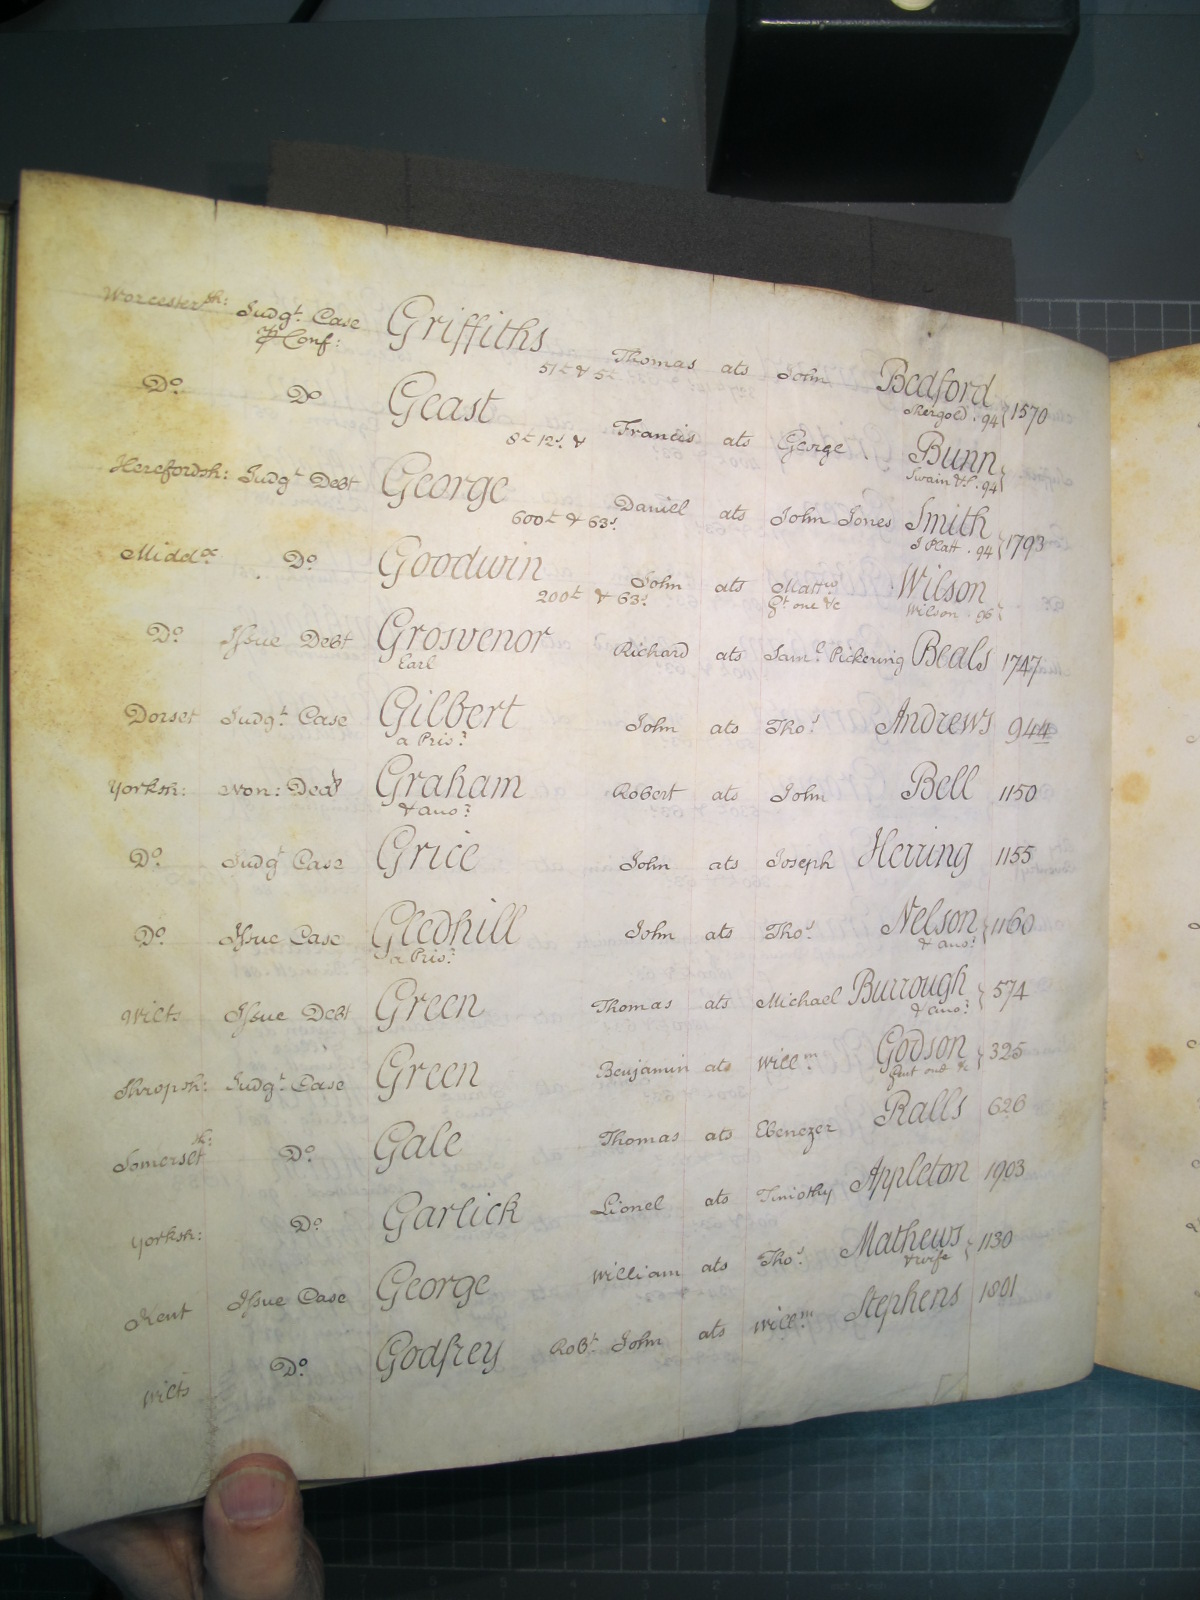 Worcestersh: Judgt. Case Griffiths Thomas ats John Bedford 1570
P Conf: 51£ & 5£ Shergold . 94
Do. Do Geast Francis ats George Bunn
8£ 12s. & Swain &c. 94
Herefordsh: Judgt Debt George Daniel ats John Jones Smith 1793
600£ & 63s. J Platt . 94
Middx Do. Goodwin John ats Mattw Wilson
200£ & 63s. Gt one &c Wilson . 96
Do. Issue Debt Grosvenor Richard ats Saml. Pickering Beals 1747
Earl
Dorset Judgt. Case Gilbert John ats Thos. Andrews 944
a Pris.
Yorksh: Non: Graham Robert ats John Bell 1150
& anor.
Do. Judgt Case Grice John ats Joseph Herring 1155
Do. Issue Case Gledhill John ats Thos. Nelson 1160
a Pris. & anor.
Wilts Issue Debt Green Thomas ats Michael Burrough 574
& anor.
Shropsh: Judgt. Case Green Benjamin ats Willm. Godson 325
Gent one &c
Somersetsh: Do. Gale Thomas ats Ebenezer Ralls 626
Yorksh: Do. Garlick Lionel ats Timothy Appleton 1903
Kent Issue Case George William ats Thos. Mathews 1130
& wife
Wilts Do. Godfrey Robt. John ats Willm. Stephens 1801